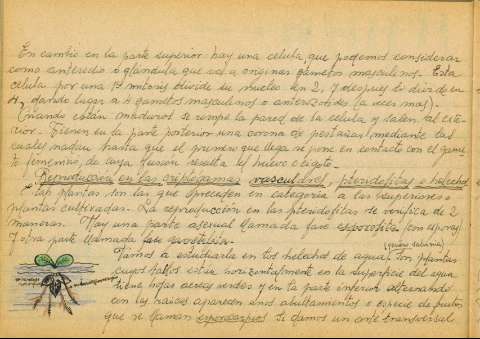 En cambio en la parte superior hay una celula, que podemos considerar
como anteredio o glandula que va a originar gametos masculinos. Esta
celula por una 1ª mitosis divide su nucleo en 2, y despues lo divide en
4, dando lugar a 4 gametos masculinos o anterozoides (a veces mas).
Cuando estan maduros se rompe la pared de la celula y salen al exte-
rior. Tienen en la parte posterior una corona de pestañas, mediante las
cuales nadan hasta que el primero que llega se pone en contacto con el game
to femenino, de cuya fusion resulta el huevo o zigote.
Reproduccion en las criptogamas vasculares, pteridofitas o helechos
Las plantas son las que preceden en categoria a las superiores o
plantas cultivadas. La reproduccion en las pteridofitas se verifica de 2
maneras. Hay una parte asexual llamada fase esporofita (con esporas)
y otra parte llamada fase
Vamos a estudiarla en los helechos de agua. Son plantas
cuyos tallos estan horizontalmente en la superficie del agua
tiene hojas aereas verdes y en la parte inferior alternando
con las raices aparecen unos abultamientos o especie de frutos
que se llaman esporocarpios. Si damos un corte transversal